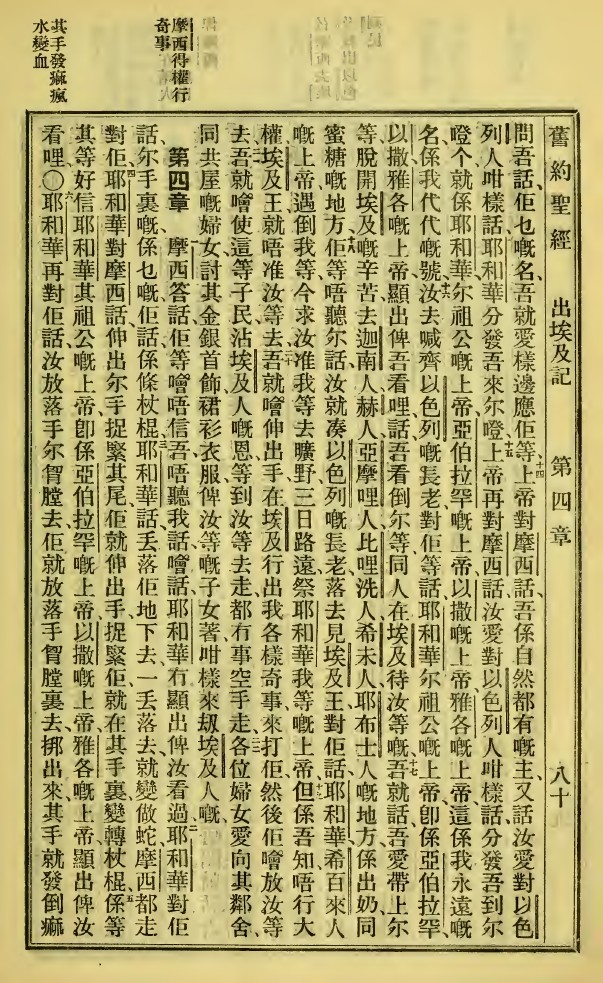 舊約聖經 出埃及記 第四章 八十
問吾話佢乜嘅名、吾就愛樣邊應佢等、十四上帝對摩西話、吾係自然都有嘅主、又話、汝愛對以色
列人咁樣話、耶和華分發吾來尔嶝、十五上帝再對摩西話、汝愛對以色列人咁樣話、分發吾到尔
嶝个、就係耶和華、尔祖公嘅上帝、亞伯拉罕嘅上帝、以撒嘅上帝、雅各嘅上帝、這係我永遠嘅
名、係我代代嘅號、十六汝去喊齊以色列嘅長老、對佢等話、耶和華尔祖公嘅上帝、卽係亞伯拉罕、
以撒、雅各、嘅上帝、顯出俾吾看哩、話、吾看倒尔等、同人在埃及待汝等嘅、十七吾就話、吾愛帶上尔
等脫開埃及嘅辛苦、去迦南人、赫人、亞摩哩人、比哩洗人、希未人、耶布士人、嘅地方、係出奶同
蜜糖嘅地方、十八佢等唔聽尔話、汝就凑以色列嘅長老落去見埃及王、對佢話、耶和華希百來人
嘅上帝、遇倒我等、今求汝准我等去曠野三日路遠、祭耶和華我等嘅上帝、十九但係吾知唔行大
權、埃及王就唔准汝等去、二十吾就噲伸出手、在埃及行出我各樣奇事、來打佢、然後佢噲放汝等
去、二一吾就噲使這等子民、沾埃及人嘅恩、等到汝等去走、都冇事空手走、二二各位婦女愛向其鄰舍、
同共屋嘅婦女、討其金銀首飾、裙衫衣服、俾汝等嘅子女著、咁樣來刼埃及人嘅、
第四章 摩西答話、佢等噲唔信吾、唔聽我話、噲話、耶和華冇顯出俾汝看過、二耶和華對佢
話、尔手裏嘅係乜嘅、佢話、係條杖棍、三耶和華話、丟落佢地下去、一丟落去、就變做蛇、摩西都走
對佢、四耶和華對摩西話、伸出尔手、捉緊其尾、佢就伸出手捉緊佢、就在其手裏變轉杖棍、五係等
其等好信耶和華其祖公嘅上帝、卽係亞伯拉罕嘅上帝、以撒嘅上帝、雅各嘅上帝、顯出俾汝
看哩、○六耶和華再對佢話、汝放落手尔胷膛去、佢就放落手胷膛裏去、挷出來、其手就發倒痲
摩西得權行
奇事
其手發痲瘋
水變血